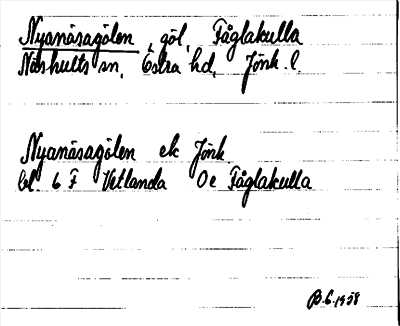 Nyanäsagölen, göl, Fåglakulla
Näshults sn, Östra hd, Jönk l.
Nyanäsagölen ek Jönk
bl. 6 F Vetlanda Oe Fåglakulla
B.G. 1958